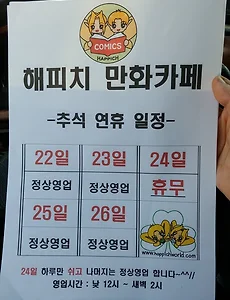 COMICS
HAPPICH
해피치 만화카페
-추석 연휴 일정-
22일 23일 24일
정상영업 정상영업 휴무
25일 26일
정상영업 정상영업
www.happichworld.com
24일 하루만 쉬고 나머지는 정상영업 합니다~^^//
영업시간 : 낮 12시 ~ 새벽 2시